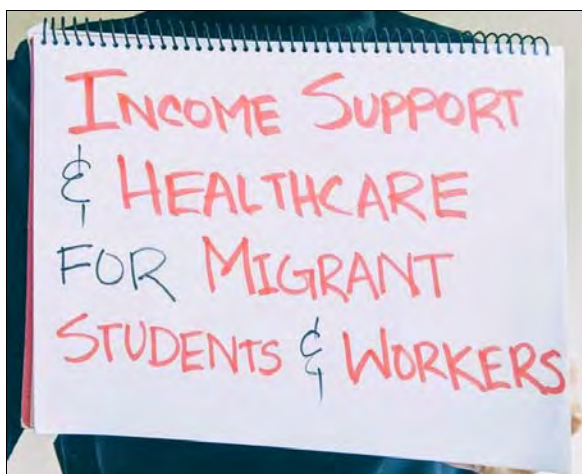 INCOME SUPPORT
& HEALTHCARE
FOR MIGRANT
STUDENTS & WORKERS